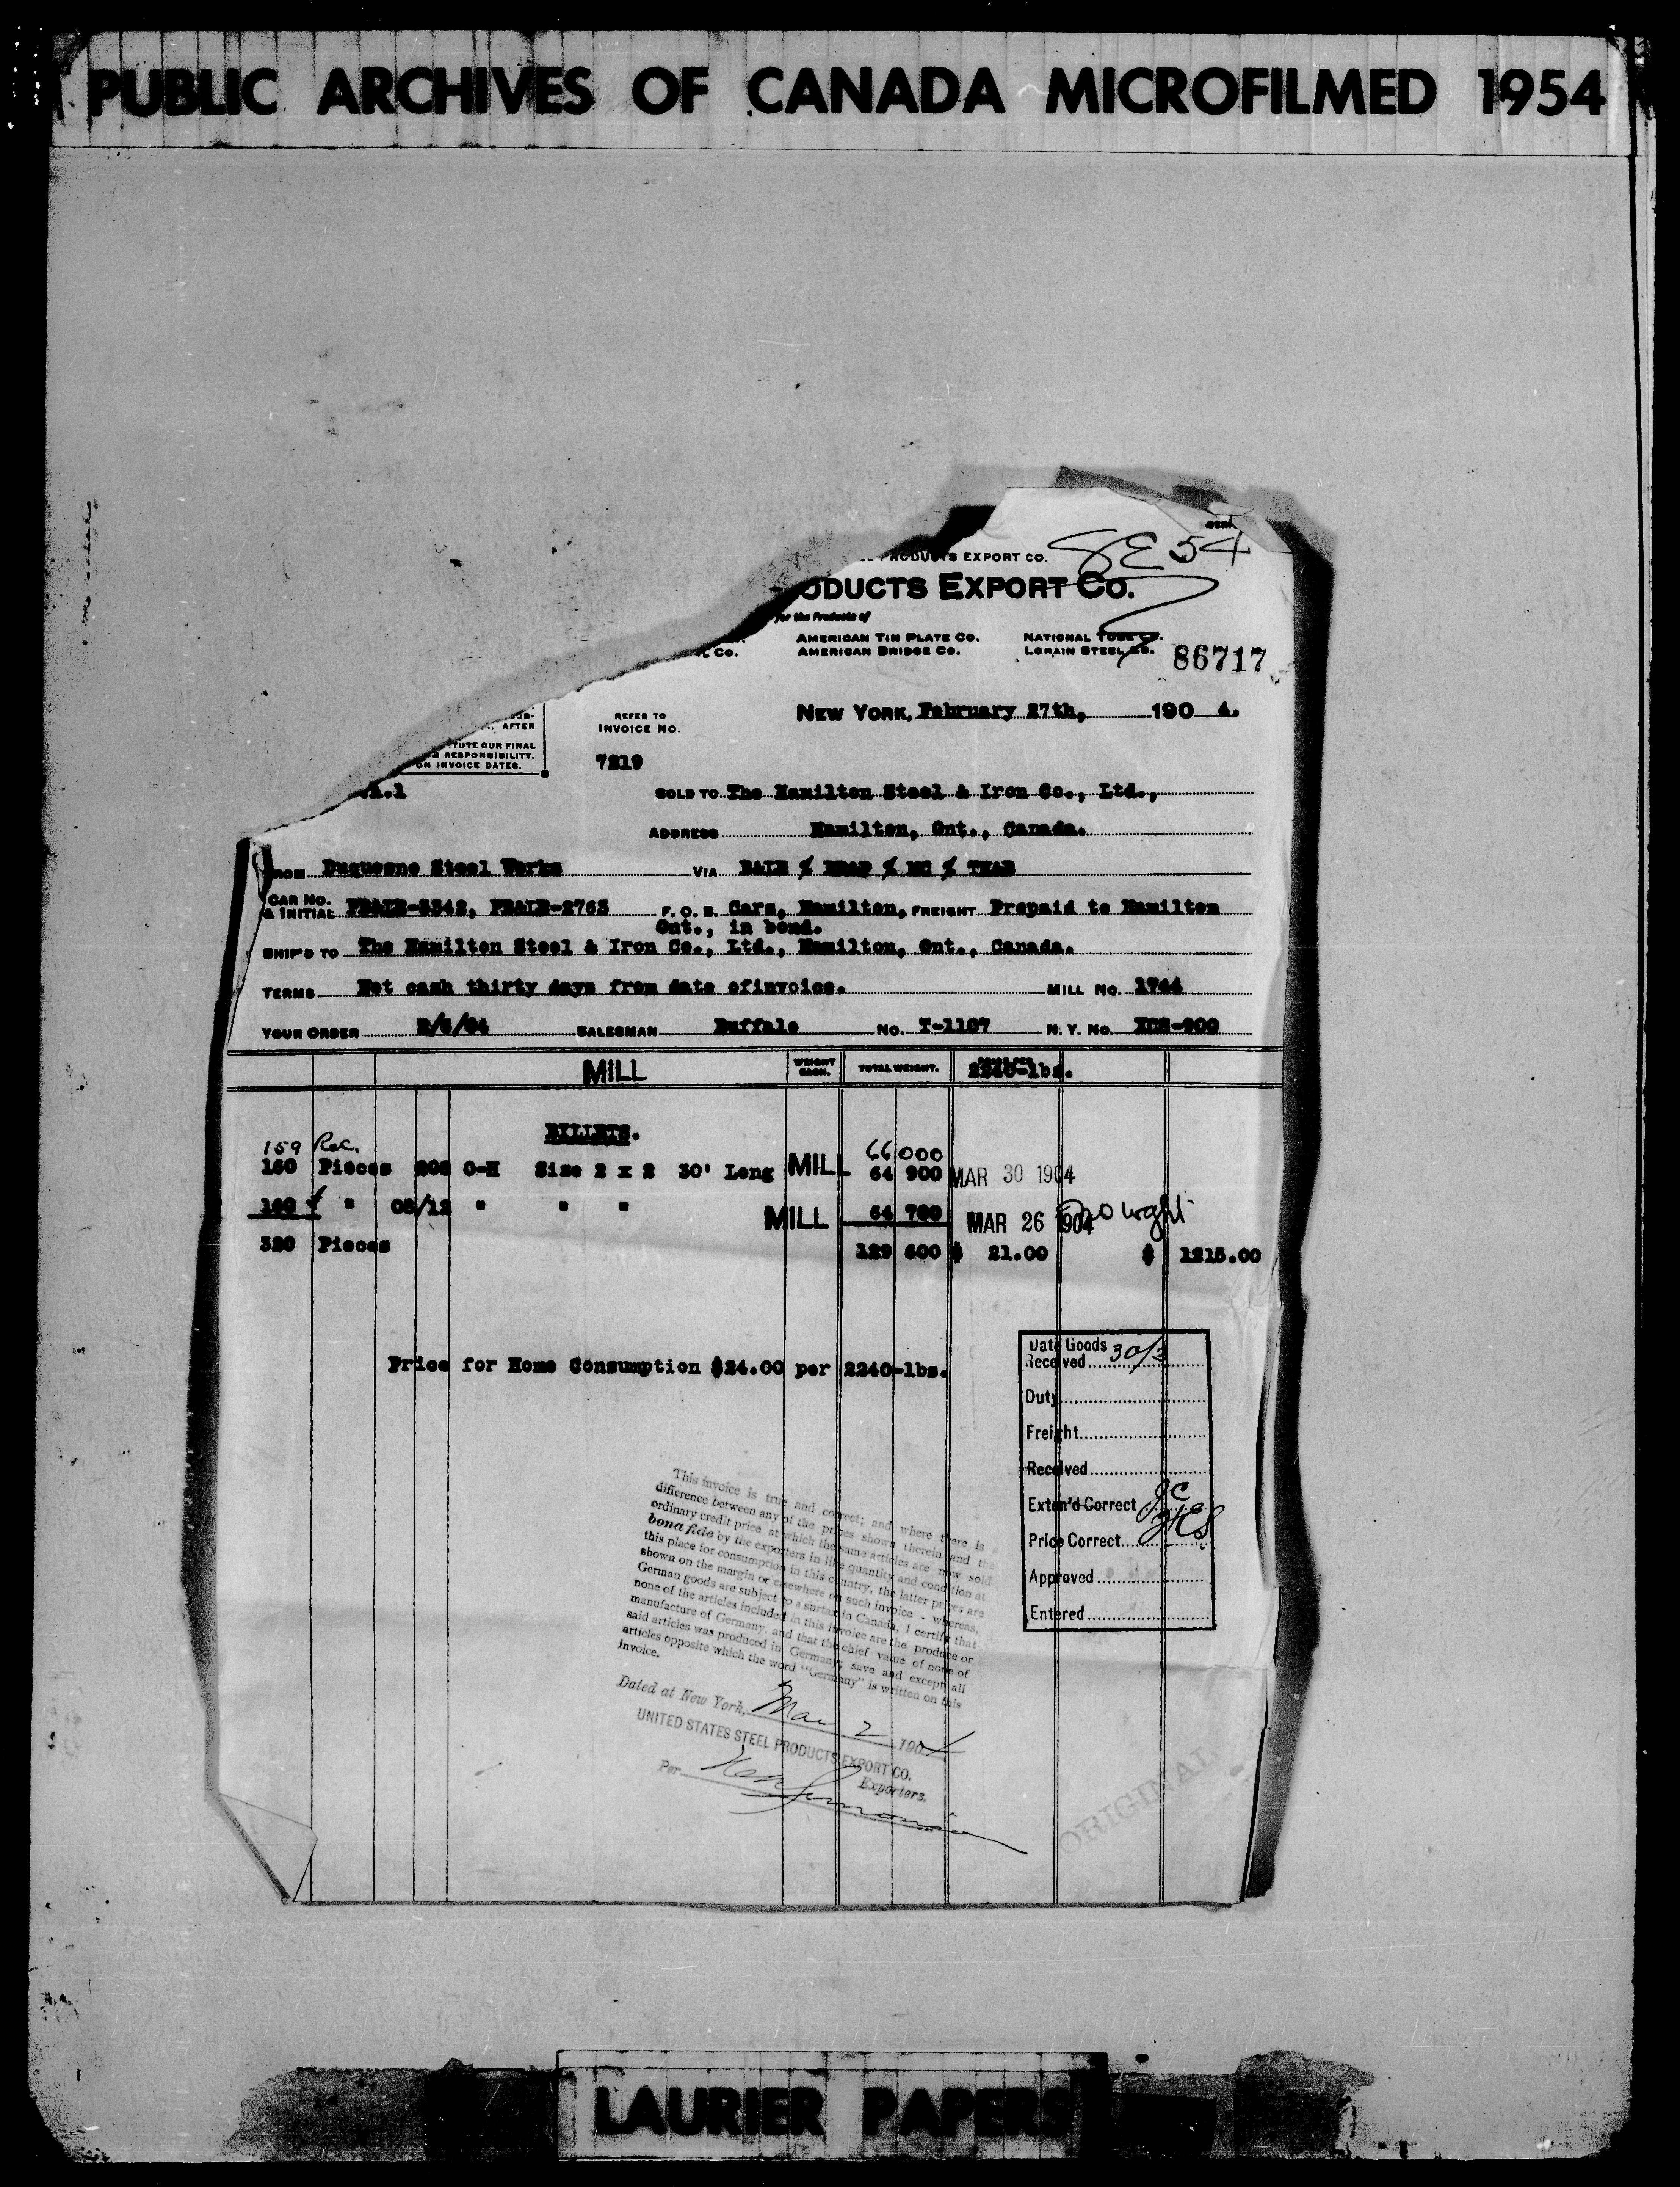 PUBLIC ARCHIVES OF CANADA MICROFILMED 1954
PRODUCTS EXPORT CO.
8E54
ODUCTS EXPORT CO.
for the Products of
AMERICAN TIN PLATE CO. NATIONAL TUBE CO.
L CO. AMERICAN BRIDGE CO. LORAIN STEEL CO.
86717
NEW YORK, February 27th, 1904.
AFTER
TUTE OUR FINAL
RESPONSIBILITY.
ON INVOICE DATES.
REFER TO
INVOICE NO.
7219
SOLD TO The Hamilton Steel & Iron Co., Ltd.,
ADDRESS Hamilton, Ont., Canada.
FROM Duquesne Steel Works VIA
CAR NO. & INITIAL P&LE-3342, P&LE-2763 F. O. B. Cars, Hamilton, FREIGHT Prepaid to Hamilton
Ont., in bond.
SHIP'D TO The Hamilton Steel & Iron Co., Ltd., Hamilton, Ont., Canada.
TERMS Net cash thirty days from date ofinvoice. MILL NO. 1744
YOUR ORDER SALESMAN Buffalo NO. T-1107 N. Y. NO.
MILL WEIGHT EACH. TOTAL WEIGHT. PRICE PER 2240-lbs.
BILLETS.
159 Rec. 66000
160 Pieces O-H Size 2 x 2 30' Long MILL 64 900 MAR 30 1904
160 " 05/12 " " " MILL 64 700 MAR 26 1904
320 Pieces 129 600 $ 21.00 $ 1215.00
Price for Home Consumption $24.00 per 2240-lbs.
Date Goods
Received 30/3
Duty
Freight
Received
Exten'd Correct
Price Correct
Approved
Entered
This invoice is true and correct; and where there is a
difference between any of the prices shown therein and the
ordinary credit price at which the same articles are now sold
bona fide by the exporters in like quantity and condition at
this place for consumption in this country, the latter prices are
shown on the margin or elsewhere on such invoice - whereas,
German goods are subject to a surtax in Canada, I certify that
none of the articles included in this invoice are the produce or
manufacture of Germany, and that the chief value of none of
said articles was produced in Germany; save and except all
articles opposite which the word "Germany" is written on this
invoice.
Dated at New York, Mar 2 1904
UNITED STATES STEEL PRODUCTS EXPORT CO.
Exporters.
Per
ORIGINAL
LAURIER PAPERS